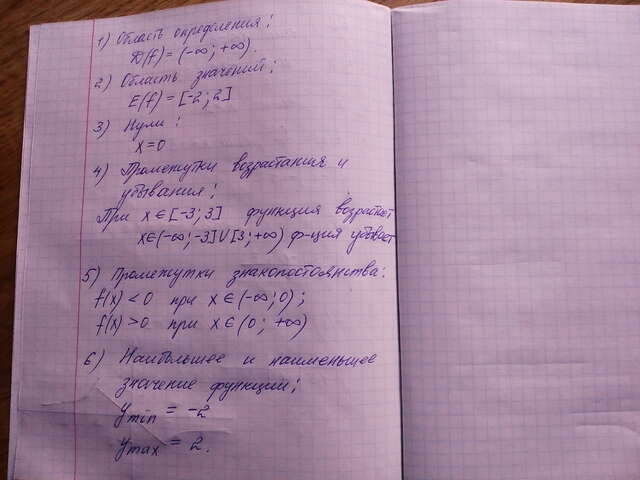 1) Область определения:
D(f) = (-∞; +∞).
2) Область значений:
E(f) = [-2; 2]
3) Нули:
x=0
4) Промежутки возрастания и
убывания:
При x∈[-3; 3] функция возрастает
x∈(-∞; -3]∪[3; +∞) ф-ция убывает
5) Промежутки знакопостоянства:
f(x) < 0 при x∈(-∞; 0);
f(x) > 0 при x∈(0; +∞)
6) Наибольшее и наименьшее
значение функции:
ymin = -2
ymax = 2.